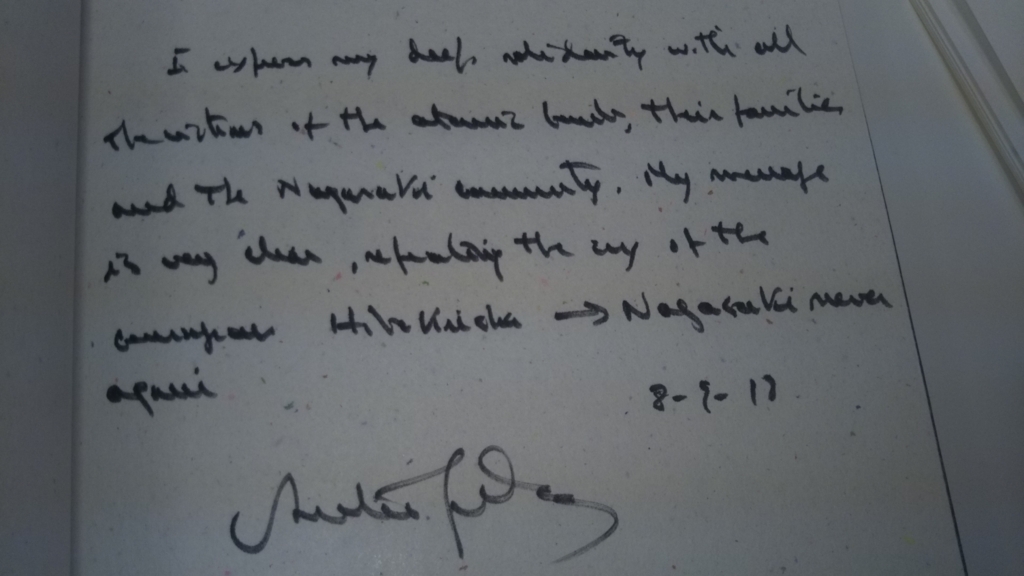 I express my deep solidarity with all
the victims of the atomic bombs, their families
and the Nagasaki community. My message
is very clear, repeating the cry of the
courageous Hibakusha → Nagasaki never
again
8-9-18